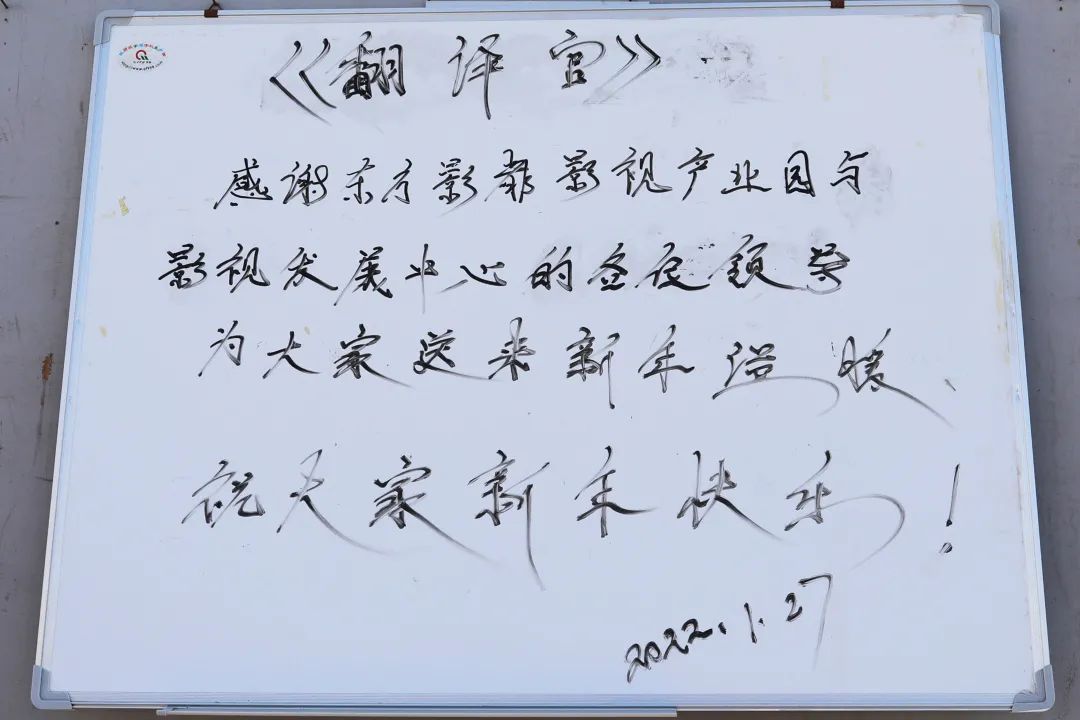 《翻译官》
感谢东方影都影视产业园与
影视发展中心的各位领导
为大家送来新年温暖、
祝大家新年快乐!
2022.1.27